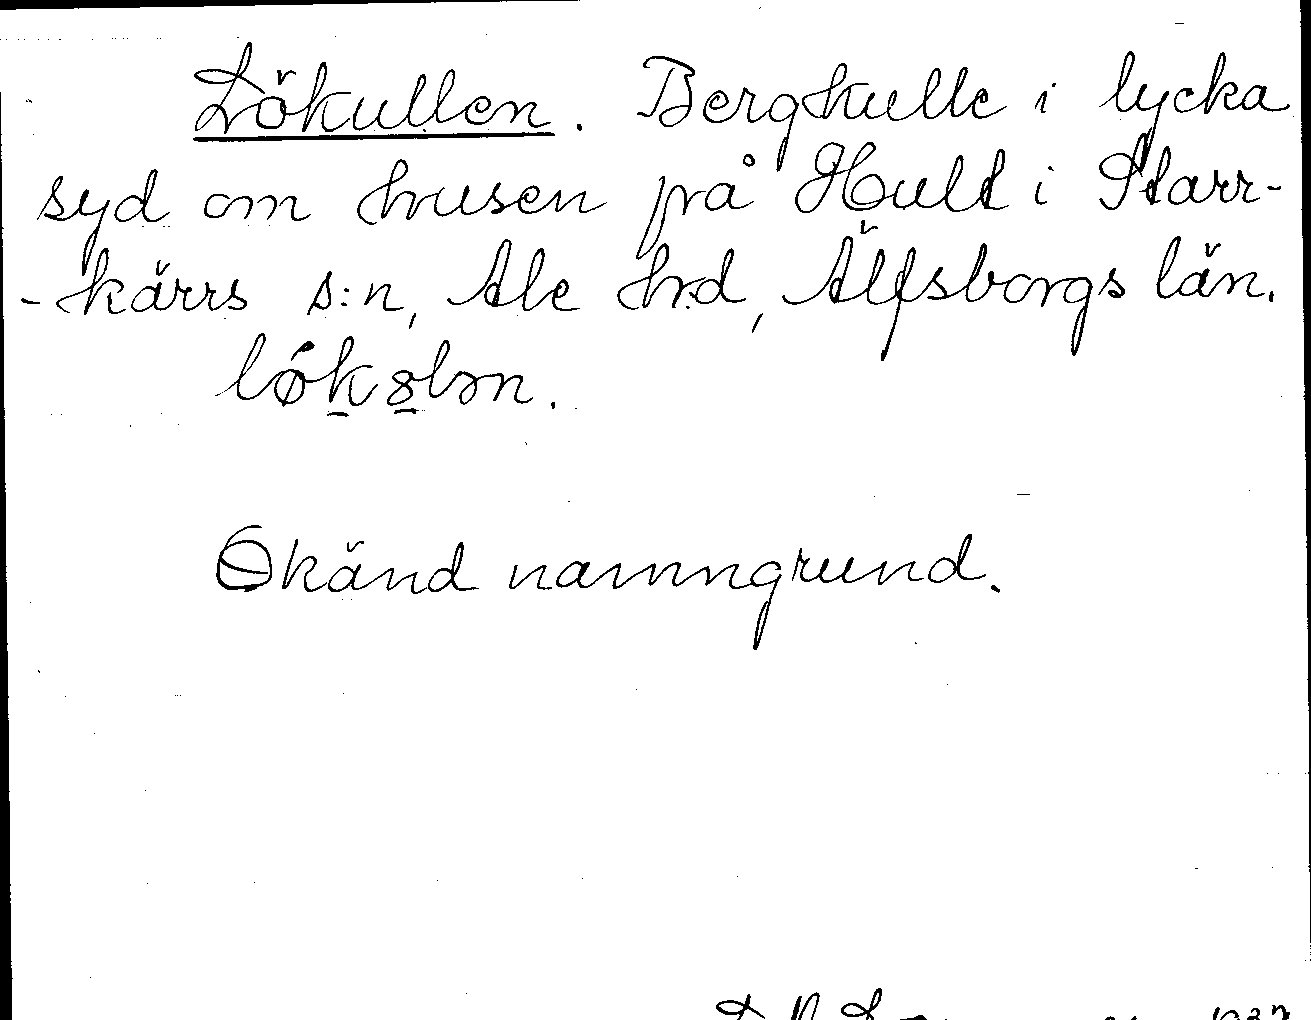 Lökullen. Bergkulle i lycka
syd om husen på Hult i Starr-
-kärrs s:n, Ale hd, Älfsborgs län.
Okänd namngrund.